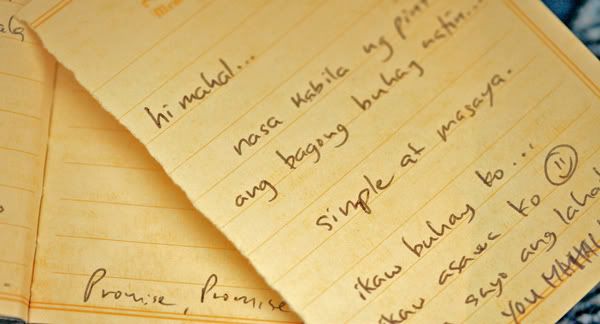 hi mahal...
nasa kabila ng
ang bagong buhay natin...
simple at masaya.
ikaw buhay ko...
ikaw asawa ko
sayo ang
YOU MAHAL
Promise, Promise